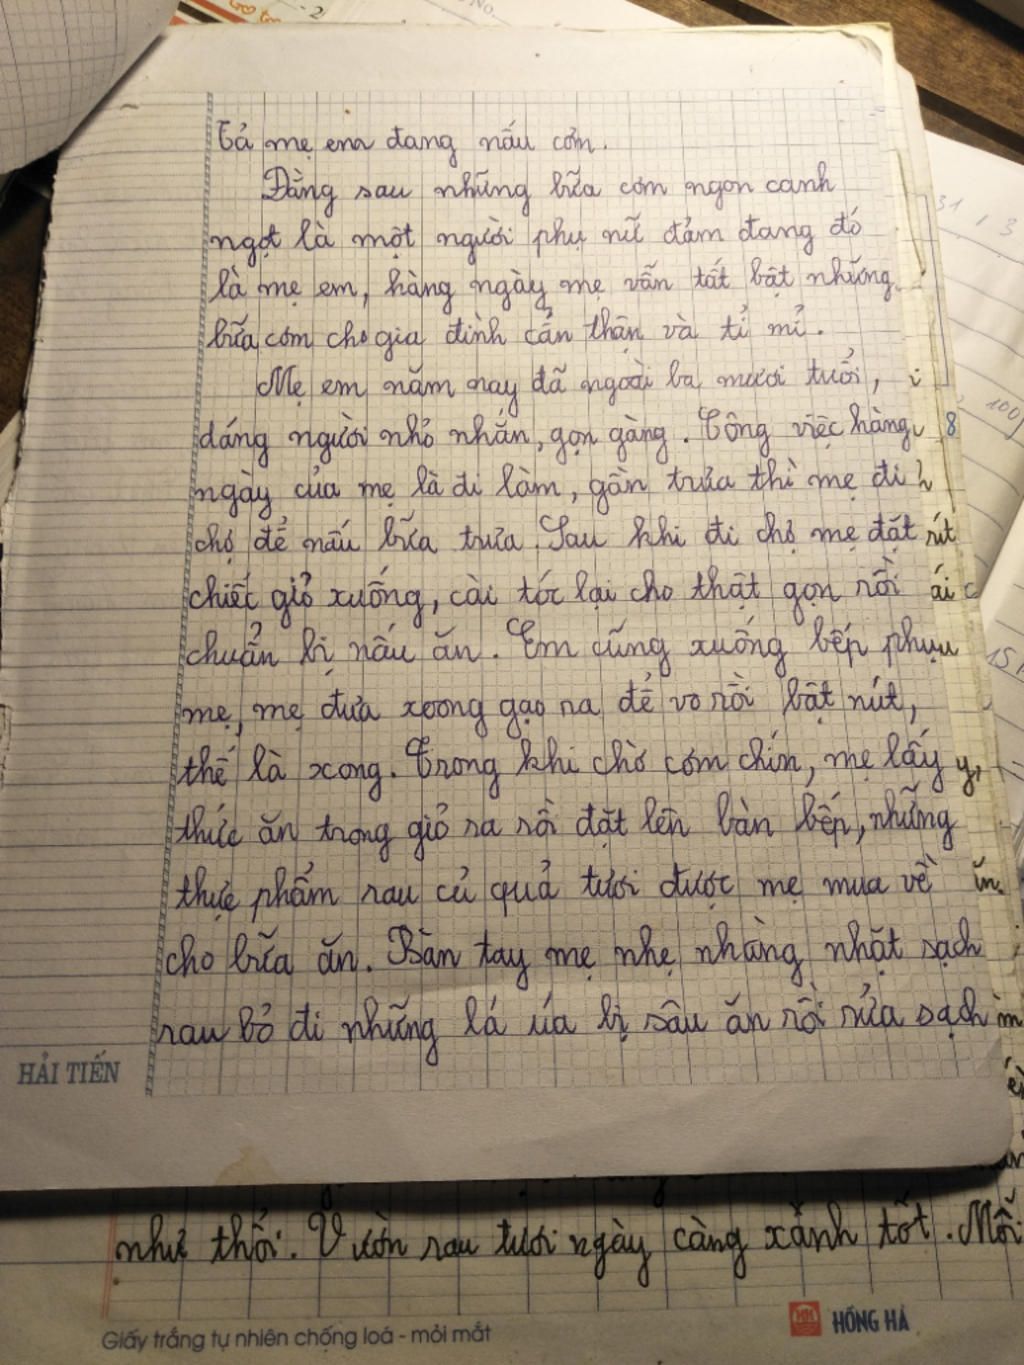 Tả mẹ em đang nấu cơm.
Đằng sau những bữa cơm ngon canh
ngọt là một người phụ nữ đảm đang đó
là mẹ em, hàng ngày mẹ vẫn tất bật những
bữa cơm cho gia đình cẩn thận và tỉ mỉ.
Mẹ em năm nay đã ngoài ba mươi tuổi,
dáng người nhỏ nhắn, gọn gàng. Công việc hàng
ngày của mẹ là đi làm, gần trưa thì mẹ đi
chợ để nấu bữa trưa. Sau khi đi chợ mẹ đặt
chiếc giỏ xuống, cài tóc lại cho thật gọn rồi
chuẩn bị nấu ăn. Em cũng xuống bếp phụ
mẹ, mẹ đưa xoong gạo ra để vo rồi bật nút,
thế là xong. Trong khi chờ cơm chín, mẹ lấy
thức ăn trong giỏ ra rồi đặt lên bàn bếp, những
thực phẩm rau củ quả tươi được mẹ mua về
cho bữa ăn. Bàn tay mẹ nhẹ nhàng nhặt sạch
rau bỏ đi những lá úa bị sâu ăn rồi rửa sạch
HẢI TIẾN
như thổi. Vườn rau tươi ngày càng xanh tốt. Mỗi
Giấy trắng tự nhiên chống loá - mỏi mắt
HỒNG HÀ
31 1 3
8
100
15